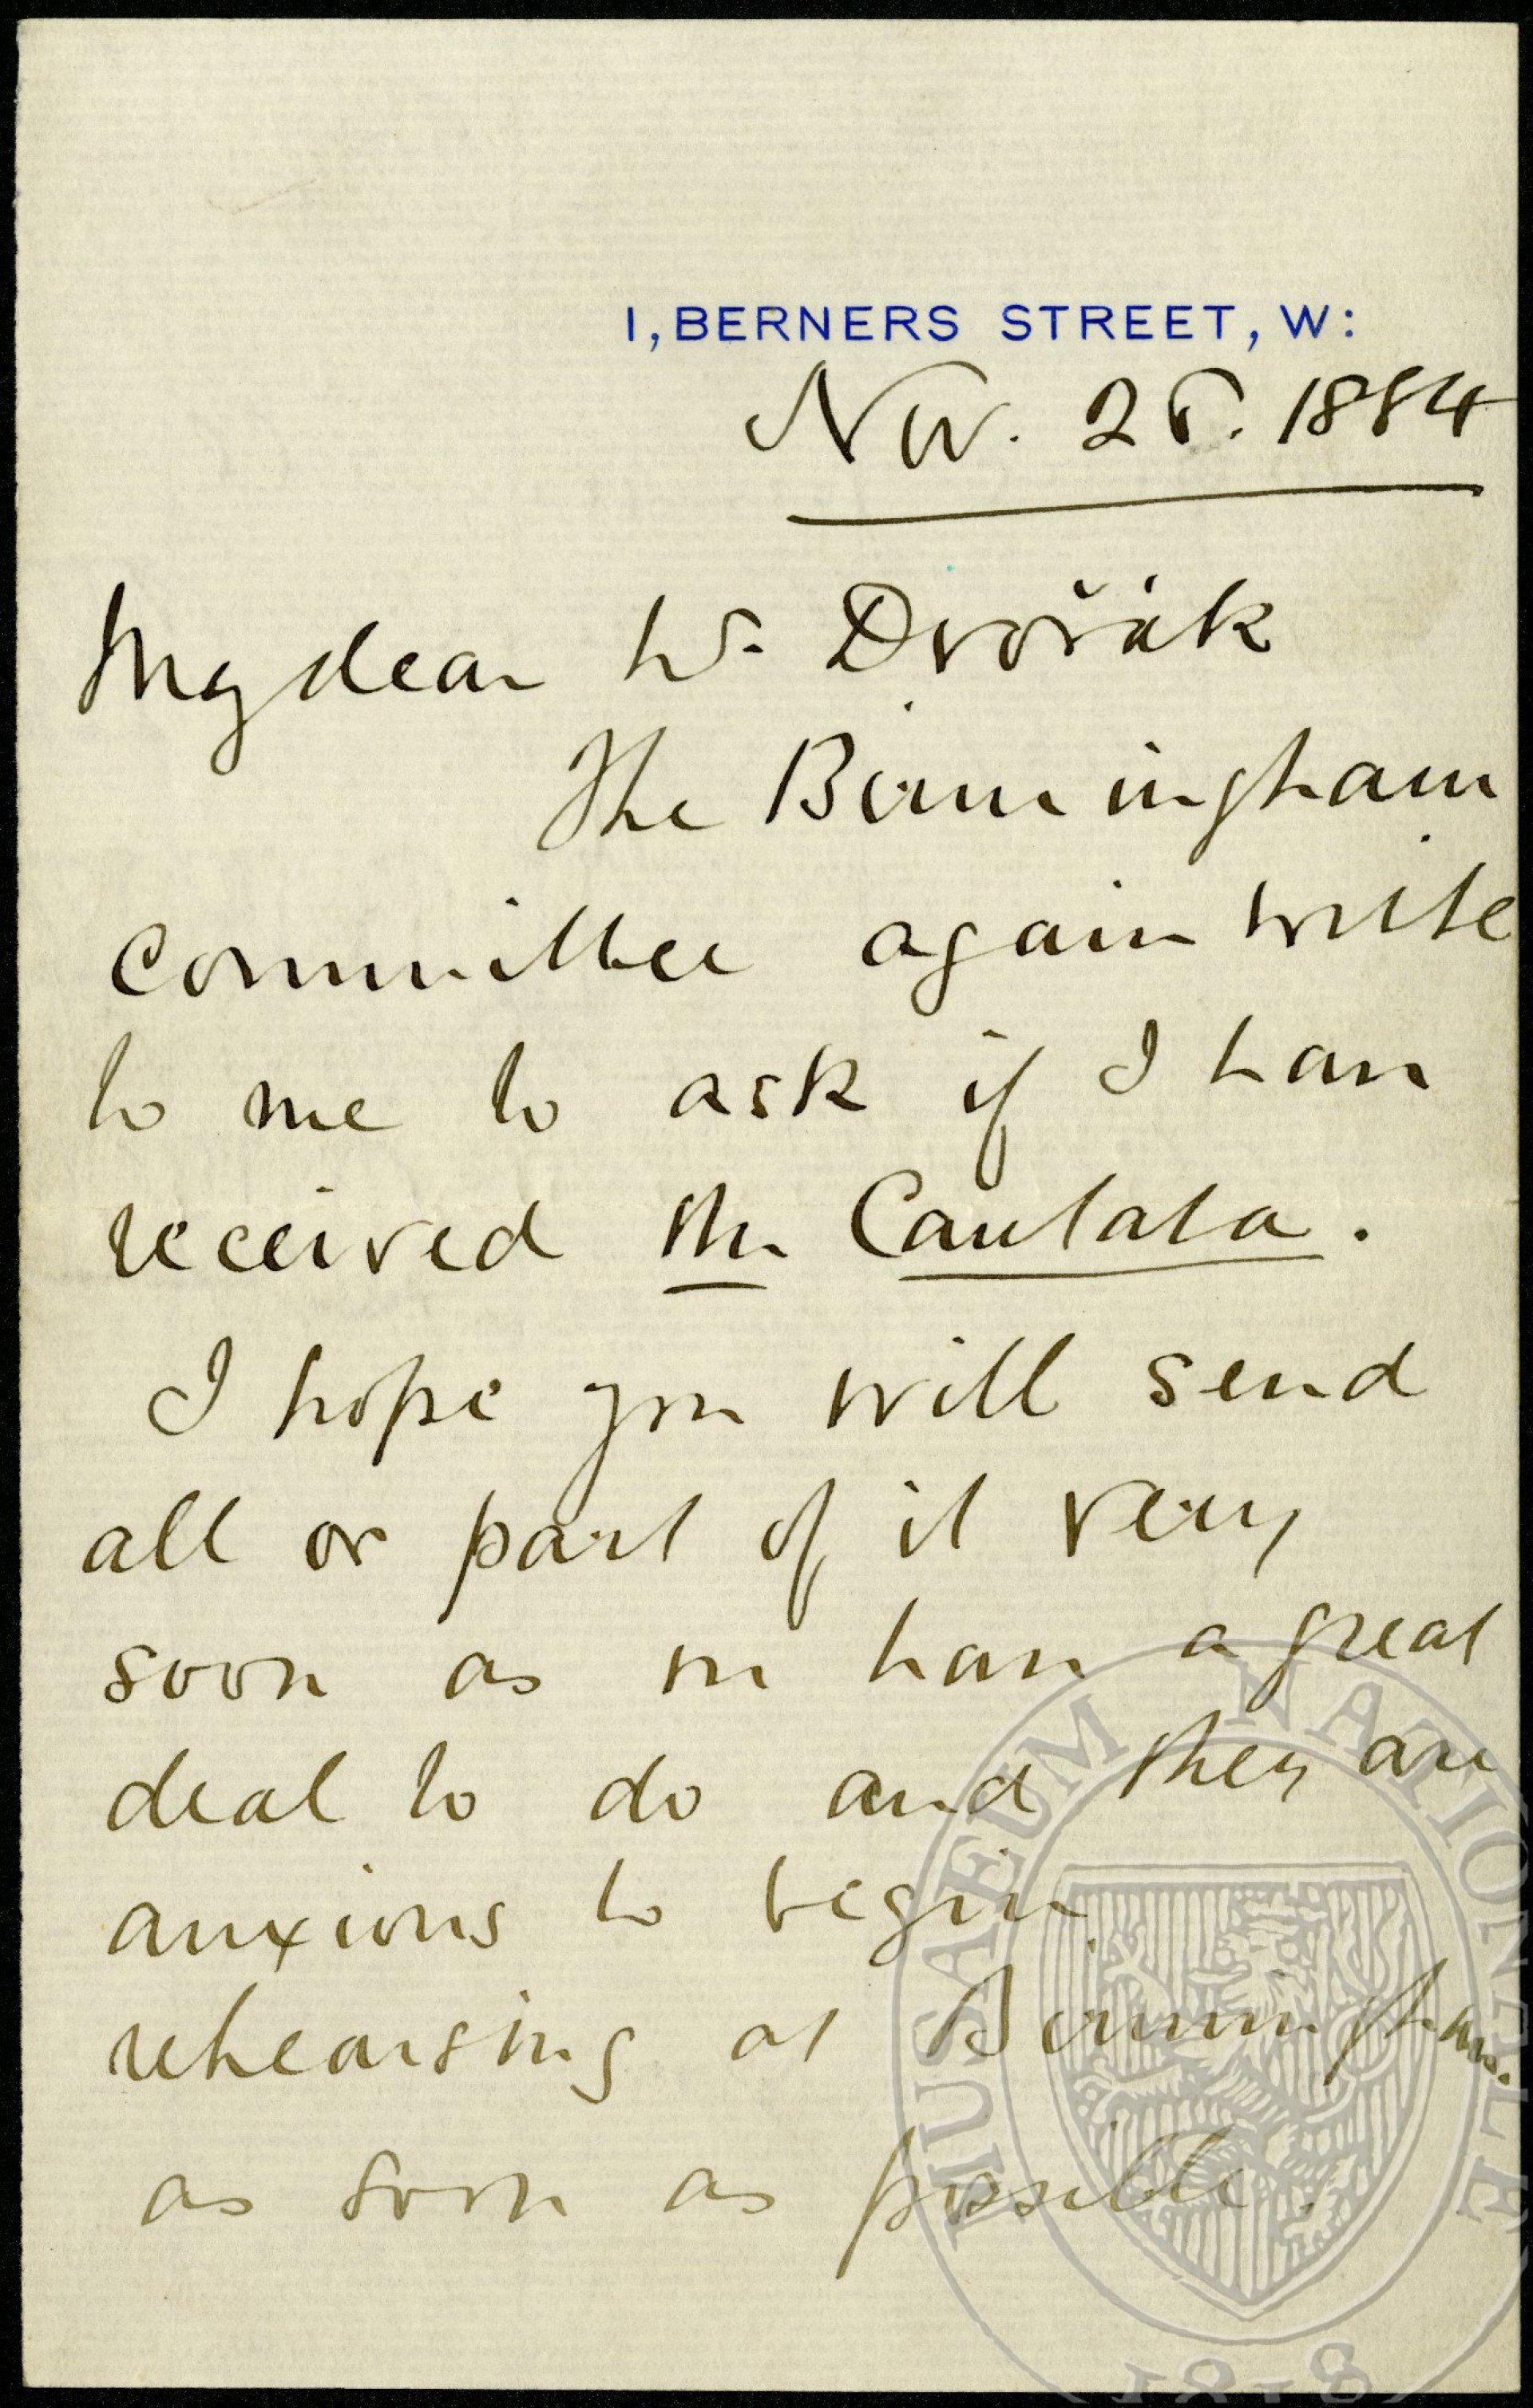 1, BERNERS STREET, W:
Nov. 28. 1884
My dear Mr. Dvořák
The Birmingham
Committee again write
to me to ask if I have
received the Cantata.
I hope you will send
all or part of it very
soon as we have a great
deal to do and they are
anxious to begin
rehearsing at Birmingham.
as soon as possible.
MUSAEUM NATIONALE
1818